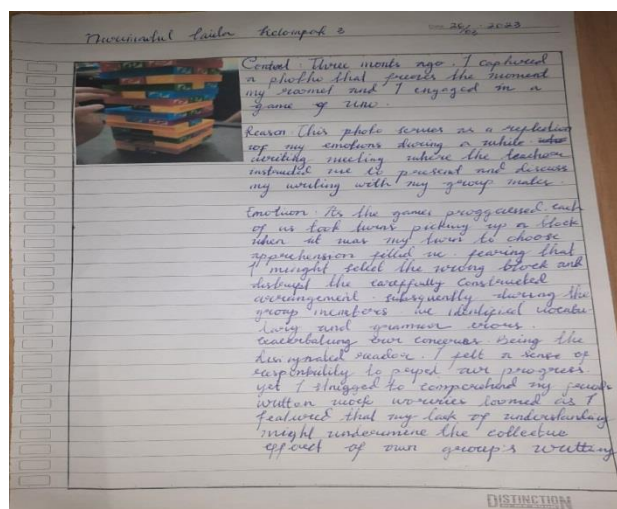 Nurinnatul Laila kelompok 2
2023
Context : Three monts ago . I captured
a photho that freezes the moment
my roomet and I engaged in a
game of uno .
Reason : This photo serves as a replection
of my emotions during a while
writing meeting where the teachear
instructed me to present and discuss
my writing with my group mates .
Emotion : As the games proggressed each
of us took turns picking up a block
when it was my turn to choose
apprehension filled me . fearing that
I minght select the wrong block and
disrupt the carefully constructed
arrangement . subsequently during the
group members we identified vocabu-
lary and grammar erors .
our concerns . Being the
designated reader . I felt a sense of
responbility to our progress .
yet I to comprehend my
written work worries loomed as I
featured that my lack of understanding
might undermine the collective
effort of own group's writting
DISTINCTION